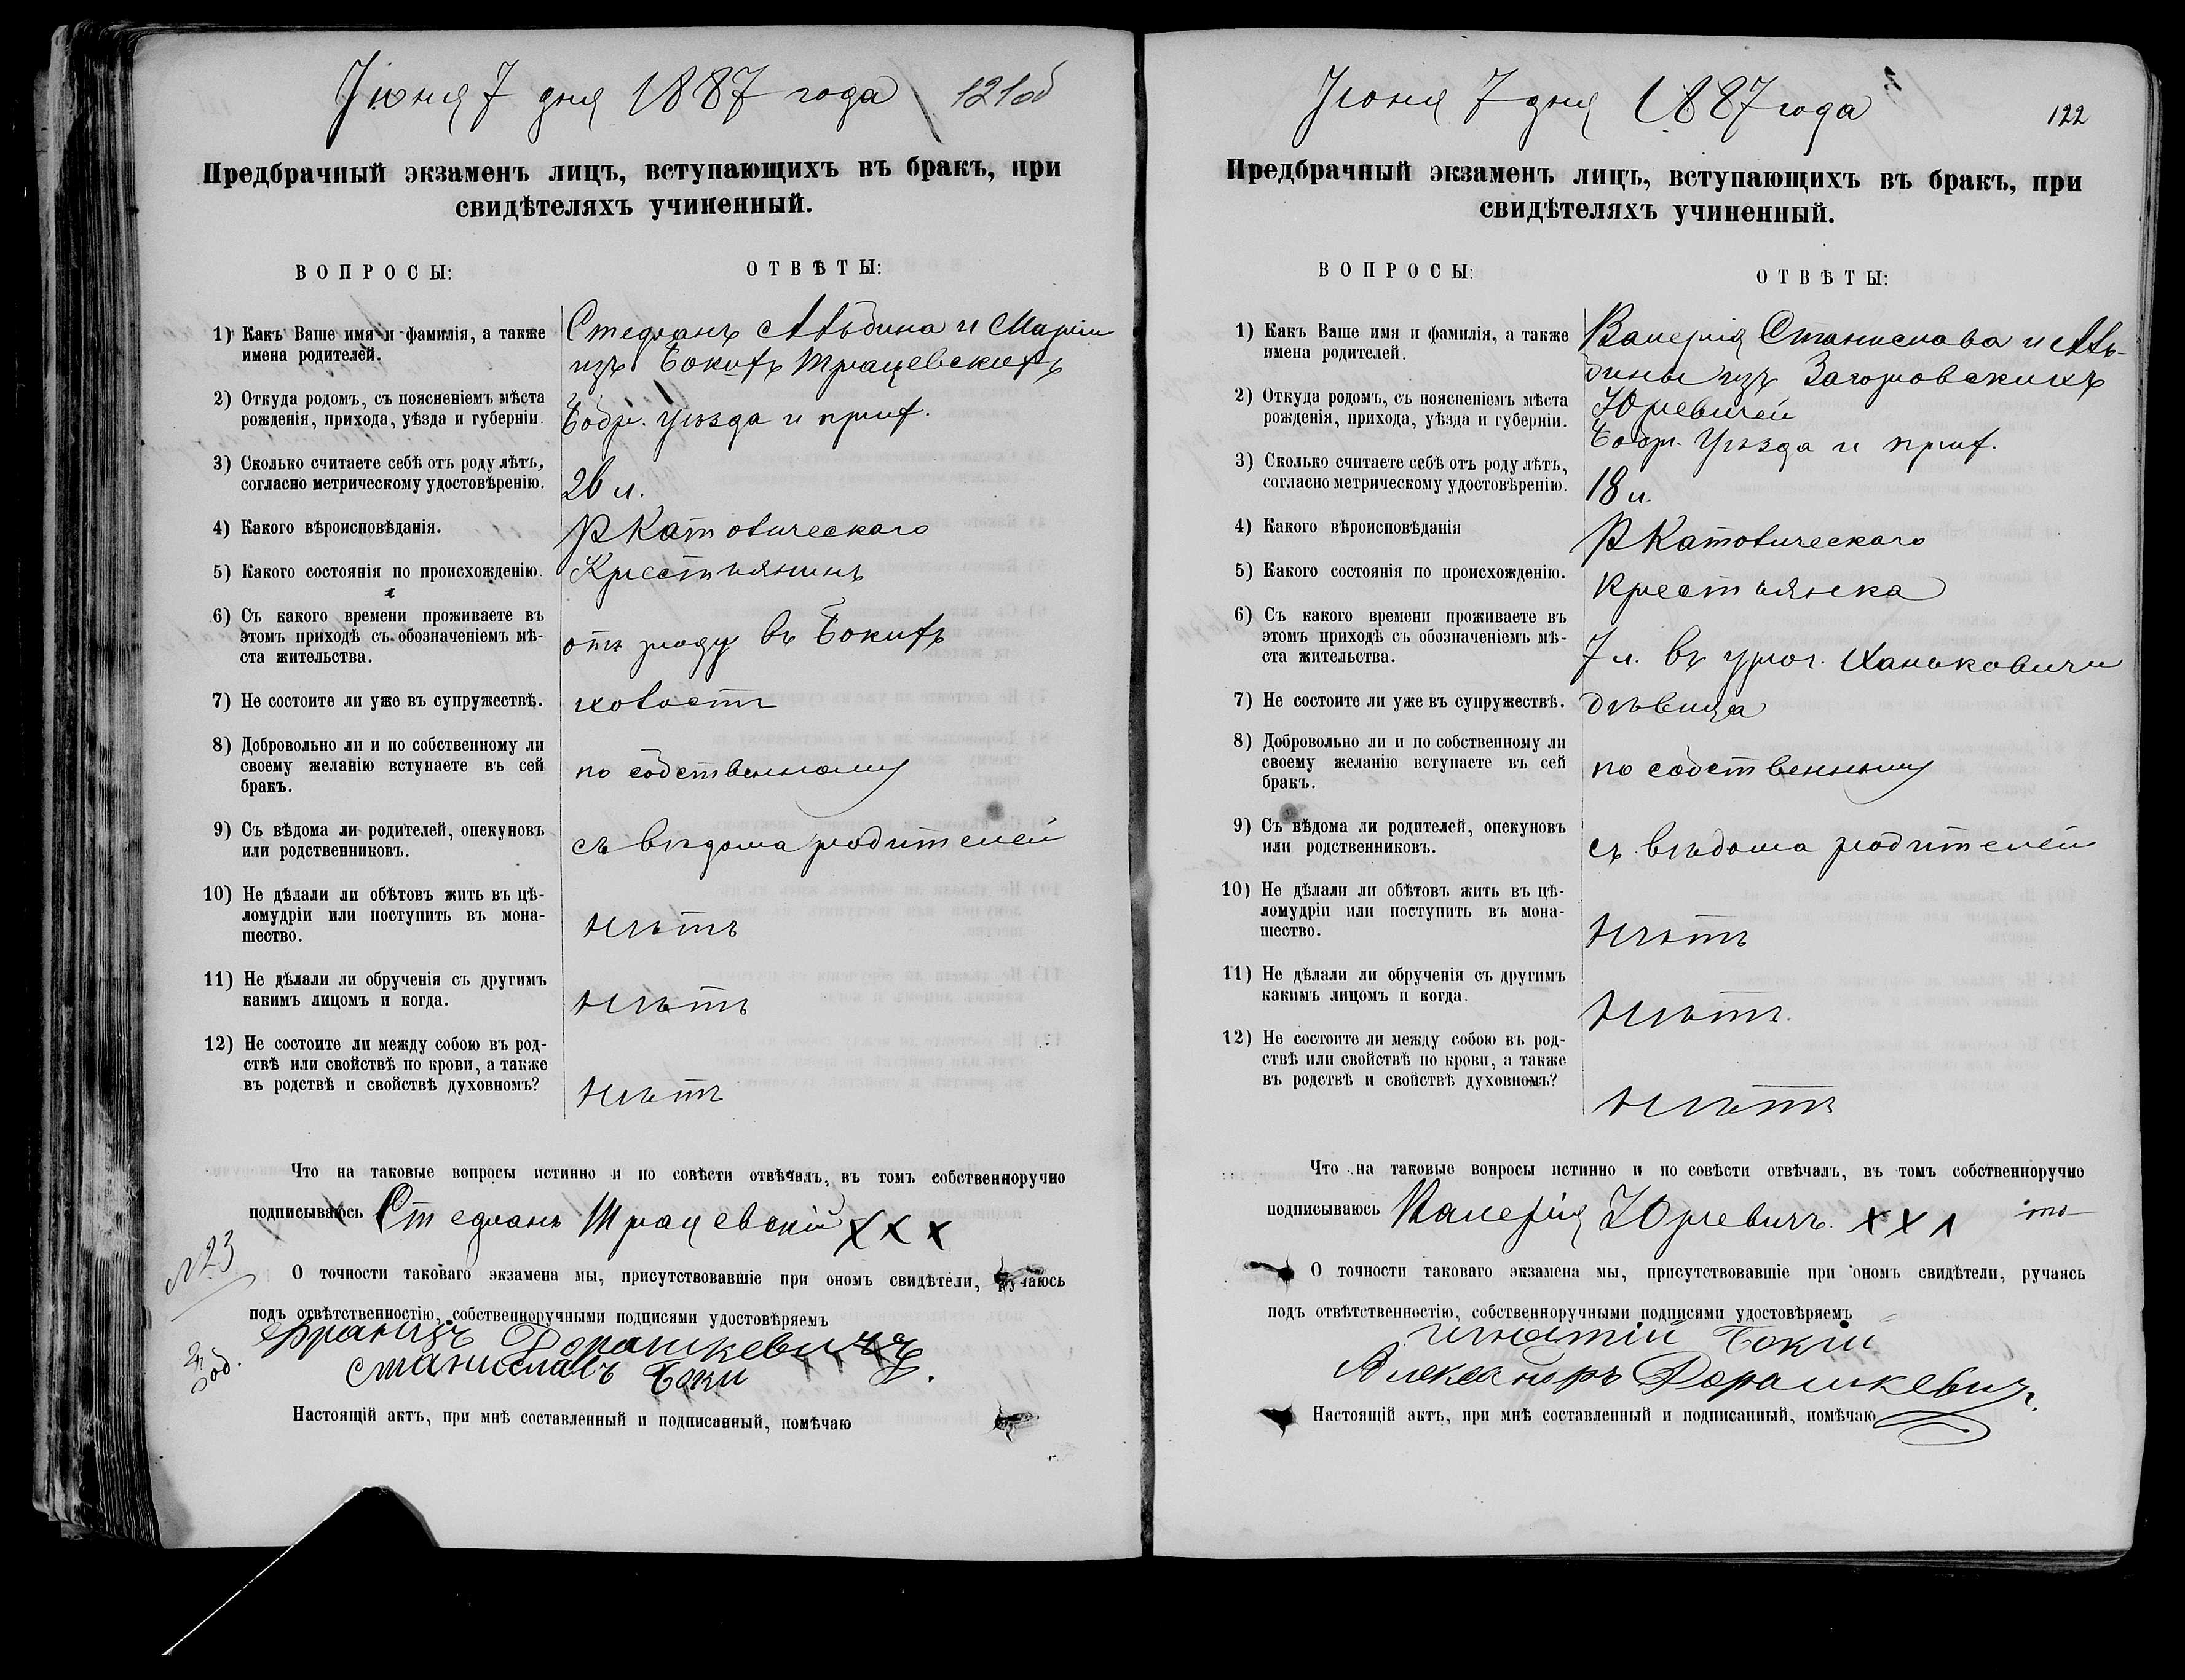 Июня 7 дня 1887 года 121об
Предбрачный экзаменъ лицъ, вступающихъ въ бракъ, при
свидѣтеляхъ учиненный.
ВОПРОСЫ: ОТВѢТЫ:
1) Какъ Ваше имя и фамилія, а также
имена родителей.
Стефанъ Альбина и Маріи
изъ Бокихъ Трацевскихъ
2) Откуда родомъ, съ поясненіемъ мѣста
рожденія, прихода, уѣзда и губерніи.
Бобр. уѣзда и прих.
3) Сколько считаете себѣ отъ роду лѣтъ,
согласно метрическому удостовѣренію.
26 л.
4) Какого вѣроисповѣданія.
Р Католическаго
5) Какого состоянія по происхожденію.
Крестьянинъ
6) Съ какого времени проживаете въ
этомъ приходѣ съ обозначеніемъ мѣ-
ста жительства.
отъ роду въ Бокихъ
7) Не состоите ли уже въ супружествѣ.
холостъ
8) Добровольно ли и по собственному ли
своему желанію вступаете въ сей
бракъ.
по собственному
9) Съ вѣдома ли родителей, опекуновъ
или родственниковъ.
съ вѣдома родителей
10) Не дѣлали ли обѣтовъ жить въ цѣ-
ломудріи или поступить въ мона-
шество.
нѣтъ
11) Не дѣлали ли обрученія съ другимъ
какимъ лицомъ и когда.
нѣтъ
12) Не состоите ли между собою въ род-
ствѣ или свойствѣ по крови, а также
въ родствѣ и свойствѣ духовномъ?
нѣтъ
Что на таковые вопросы истинно и по совѣсти отвѣчалъ, въ томъ собственноручно
подписываюсь Стефанъ Трацевскій ХХХ
№23
О точности таковаго экзамена мы, присутствовавшіе при ономъ свидѣтели, ручаюсь
подъ отвѣтственностію, собственноручными подписями удостовѣряемъ
Францъ Дорашкевичъ
Станиславъ Боки
Настоящій актъ, при мнѣ составленный и подписанный, помѣчаю
Июня 7 дня 1887 года 122
Предбрачный экзаменъ лицъ, вступающихъ въ бракъ, при
свидѣтеляхъ учиненный.
ВОПРОСЫ: ОТВѢТЫ:
1) Какъ Ваше имя и фамилія, а также
имена родителей.
Валерія Станислава и Аль-
бины изъ Загоровскихъ
Юревичей
2) Откуда родомъ, съ поясненіемъ мѣста
рожденія, прихода, уѣзда и губерніи.
Бобр. Уѣзда и прих.
3) Сколько считаете себѣ отъ роду лѣтъ,
согласно метрическому удостовѣренію.
18 л.
4) Какого вѣроисповѣданія
Р Католическаго
5) Какого состоянія по происхожденію.
Крестьянка
6) Съ какого времени проживаете въ
этомъ приходѣ съ обозначеніемъ мѣ-
ста жительства.
7 л. въ уроч. Ханьковичи
7) Не состоите ли уже въ супружествѣ.
дѣвица
8) Добровольно ли и по собственному ли
своему желанію вступаете въ сей
бракъ.
по собственному
9) Съ вѣдома ли родителей, опекуновъ
или родственниковъ.
съ вѣдома родителей
10) Не дѣлали ли обѣтовъ жить въ цѣ-
ломудріи или поступить въ мона-
шество.
нѣтъ
11) Не дѣлали ли обрученія съ другимъ
какимъ лицомъ и когда.
нѣтъ.
12) Не состоите ли между собою въ род-
ствѣ или свойствѣ по крови, а также
въ родствѣ и свойствѣ духовномъ?
нѣтъ
Что на таковые вопросы истинно и по совѣсти отвѣчалъ, въ томъ собственноручно
подписываюсь Валерія Юревичъ. ХХХ
О точности таковаго экзамена мы, присутствовавшіе при ономъ свидѣтели, ручаясь
подъ отвѣтственностію, собственноручными подписями удостовѣряемъ
Игнатій Бокій
Александръ Дорашкевичъ.
Настоящій актъ, при мнѣ составленный и подписанный, помѣчаю